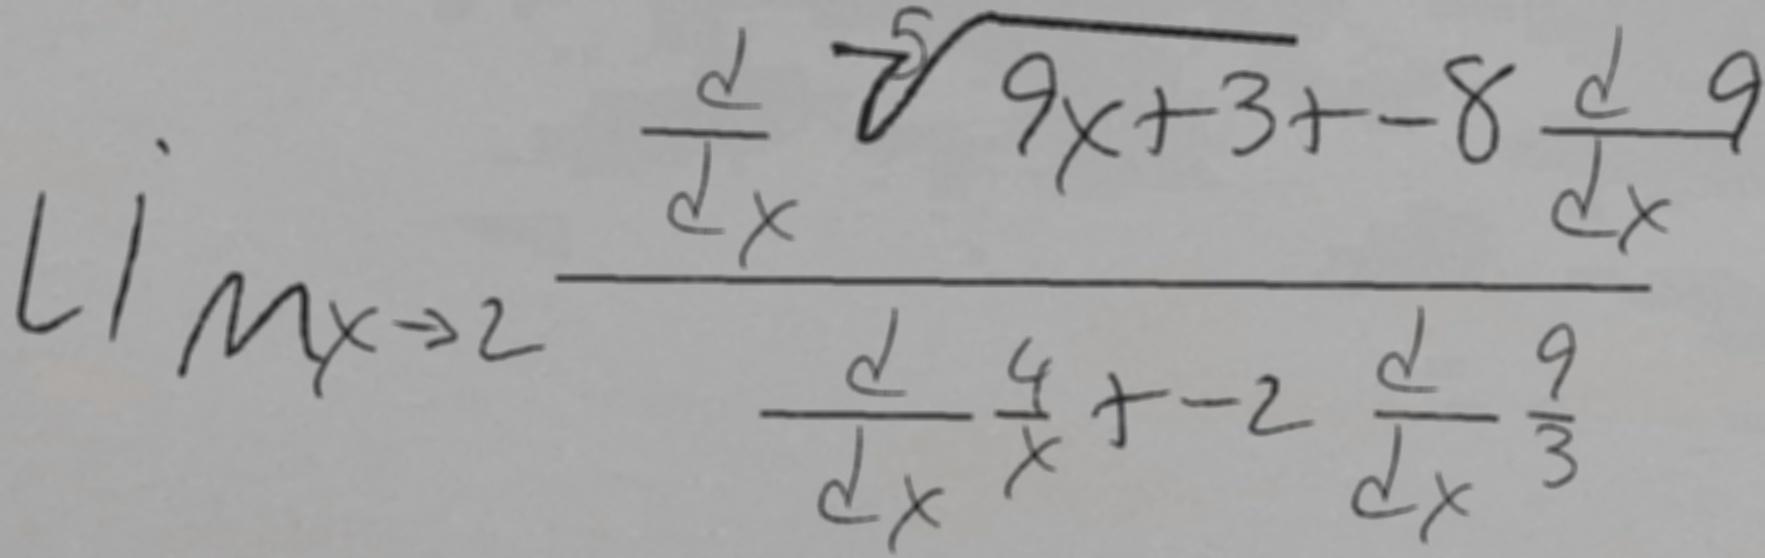 \lim_{x \to 2} \frac{\frac{d}{dx} \sqrt[5]{9x+3} + -8 \frac{d}{dx} 9}{\frac{d}{dx} \frac{4}{x} + -2 \frac{d}{dx} \frac{9}{3}}